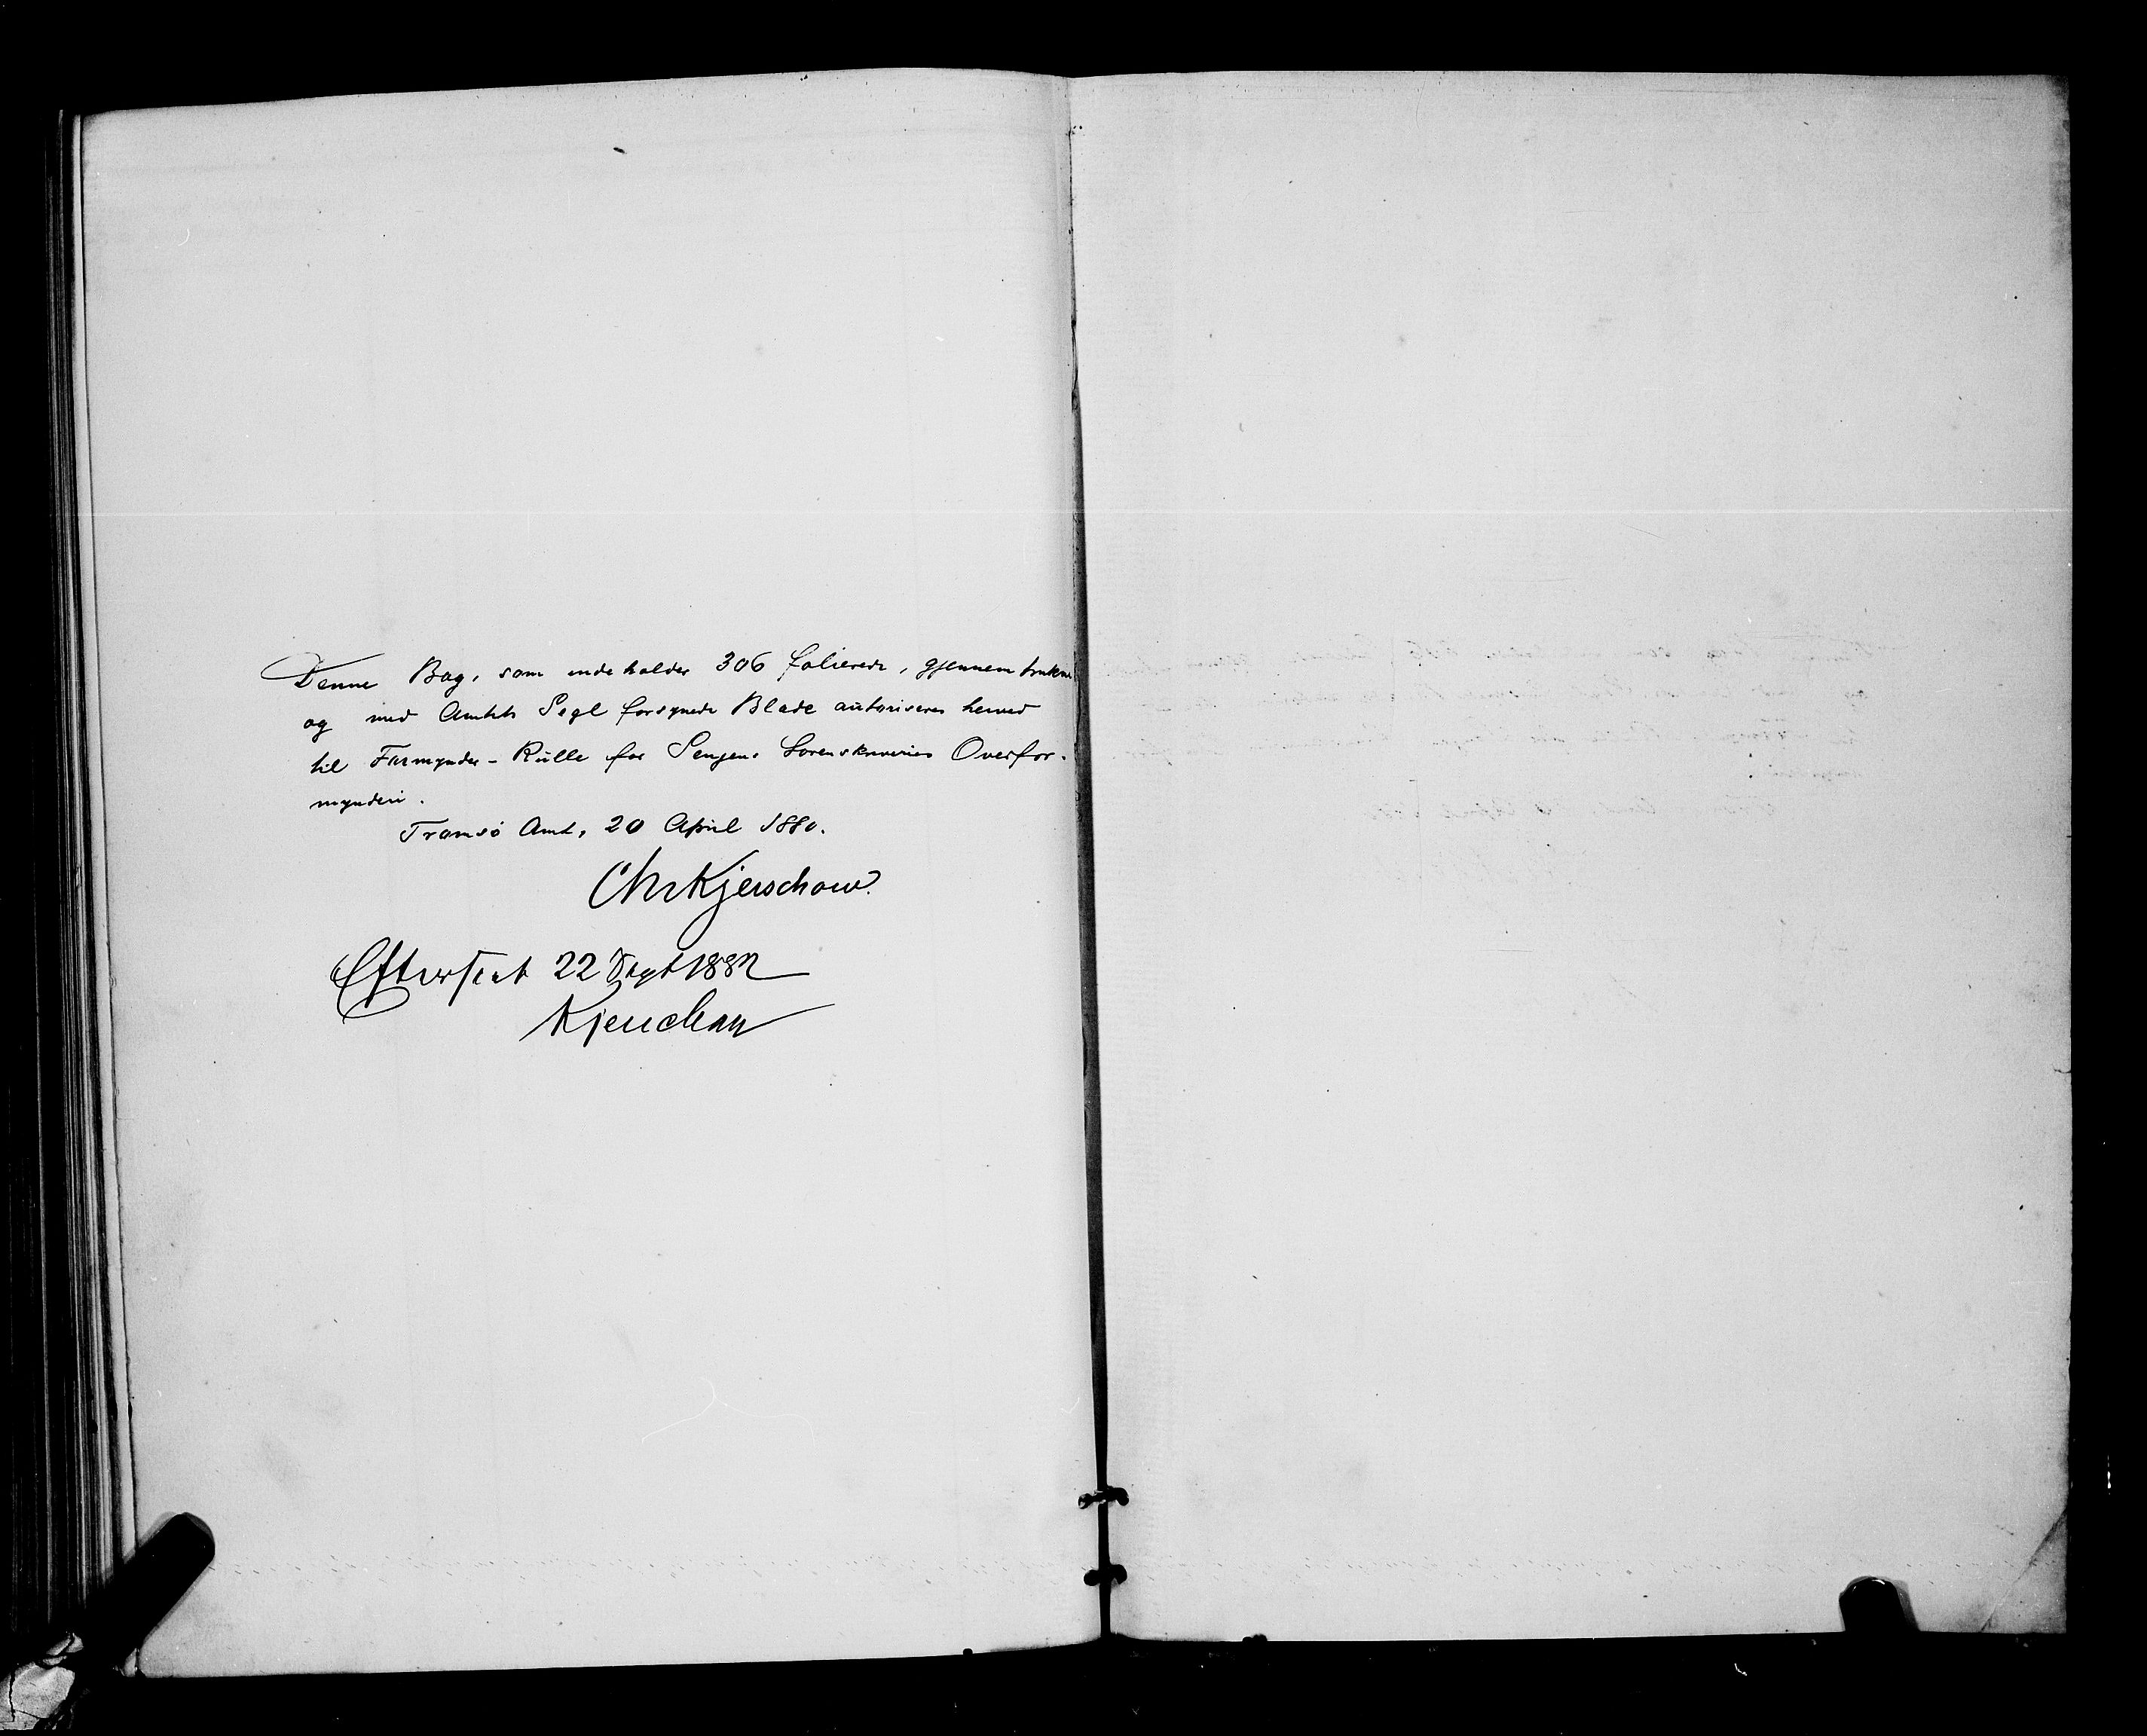 Denne Bog, som indeholder 306 folierede, gjennemtrukne
og med Amtets Segl forsynede Blade autoriseres herved
til Formynder-Rulle for Senjens Sorenskriveries Overfor-
mynderi.
Tromsö Amt, 20 April 1880.
Chr Kjerschow.
Efterseet 22 Sept 1882
Kjerschow